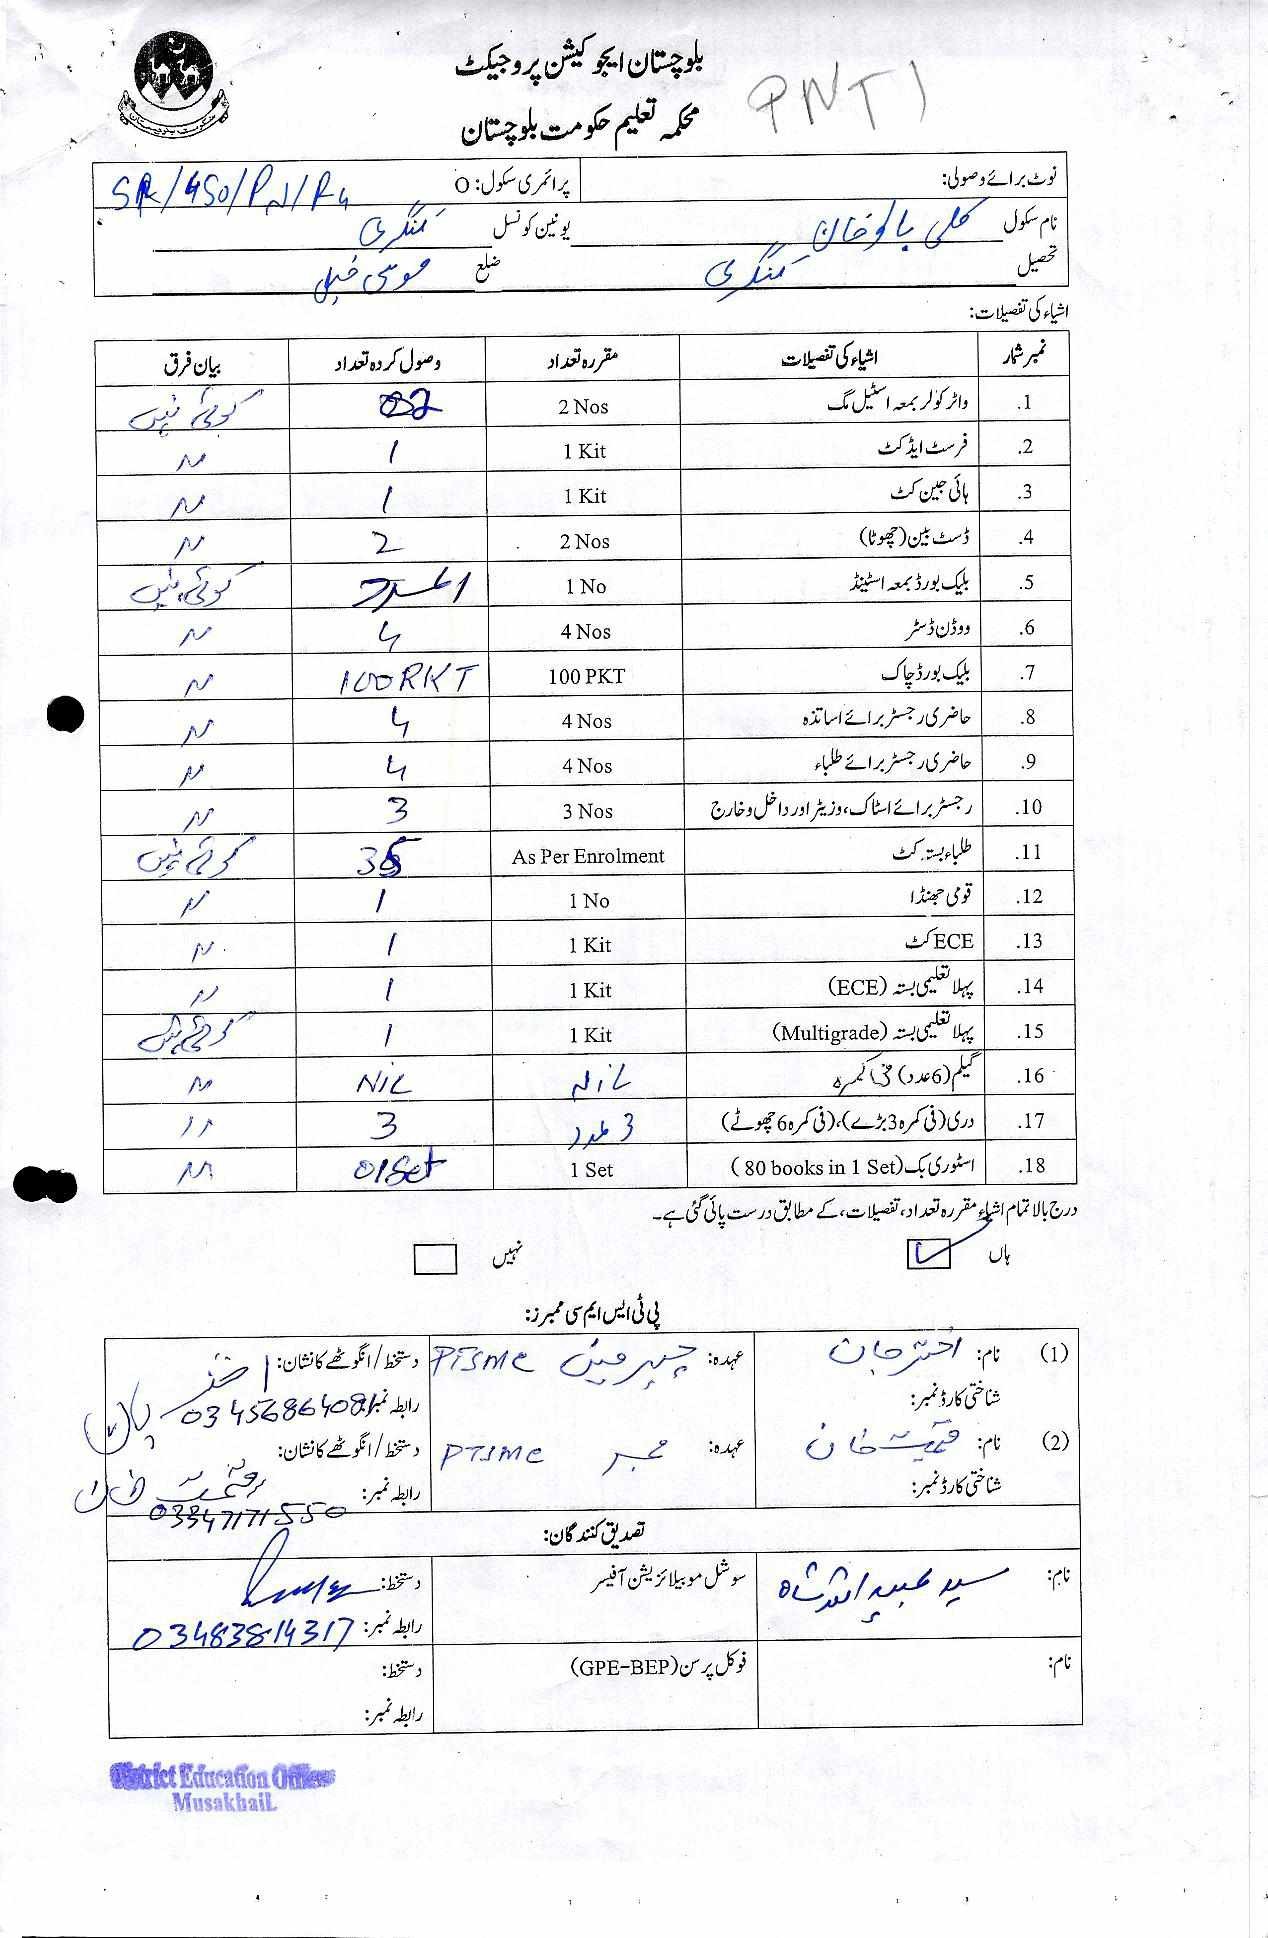 بلوچستان ایجوکیشن پروجیکٹ
محکمہ تعلیم حکومت بلوچستان
PNT1
نوٹ برائے وصولی: پرائمری سکول: O
نام سکول کلی بالو خان یونین کونسل کنگری
تحصیل کنگری ضلع موسیٰ خیل
اشیاء کی تفصیلات:
نمبر شمار اشیاء کی تفصیلات مقررہ تعداد وصول کردہ تعداد بیان فرق
1. واٹر کولر بمعہ اسٹیل مگ 2 Nos 02 کوئی نہیں
2. فرسٹ ایڈ کٹ 1 Kit 1 〃
3. ہائی جین کٹ 1 Kit 1 〃
4. ڈسٹ بین (چھوٹا) 2 Nos 2 〃
5. بلیک بورڈ بمعہ اسٹینڈ 1 No 1 عدد کوئی نہیں
6. ووڈن ڈسٹر 4 Nos 4 〃
7. بلیک بورڈ چاک 100 PKT 100 PKT 〃
8. حاضری رجسٹر برائے اساتذہ 4 Nos 4 〃
9. حاضری رجسٹر برائے طلباء 4 Nos 4 〃
10. رجسٹر برائے اسٹاک، وزیٹر اور داخل و خارج 3 Nos 3 〃
11. طلباء بستہ کٹ As Per Enrolment 35 کوئی نہیں
12. قومی جھنڈا 1 No 1 〃
13. ECE کٹ 1 Kit 1 〃
14. پہلا تعلیمی بستہ (ECE) 1 Kit 1 〃
15. پہلا تعلیمی بستہ (Multigrade) 1 Kit 1 کوئی نہیں
16. گیلم (6 عدد) فی کمرہ NiL NiL 〃
17. دری (فی کمرہ 3 بڑے)، (فی کمرہ 6 چھوٹے) 3 عدد 3 〃
18. اسٹوری بک (80 books in 1 Set) 1 Set 01 Set 〃
درج بالا تمام اشیاء مقررہ تعداد، تفصیلات، کے مطابق درست پائی گئی ہے۔
ہاں ✓ نہیں
پی ٹی ایس ایم سی ممبرز:
(1) نام: اختر جان عہدہ: چیئرمین PTSMC دستخط/انگوٹھے کا نشان:
شناختی کارڈ نمبر: رابطہ نمبر:
(2) نام: خان عہدہ: ممبر PTSMC دستخط/انگوٹھے کا نشان:
شناختی کارڈ نمبر: رابطہ نمبر: 03347171550
تصدیق کنندگان:
نام: سید شاہ سوشل موبیلائزیشن آفیسر دستخط:
رابطہ نمبر: 03483814317
نام: فوکل پرسن (GPE-BEP) دستخط:
رابطہ نمبر:
District Education Officer
Musakhail